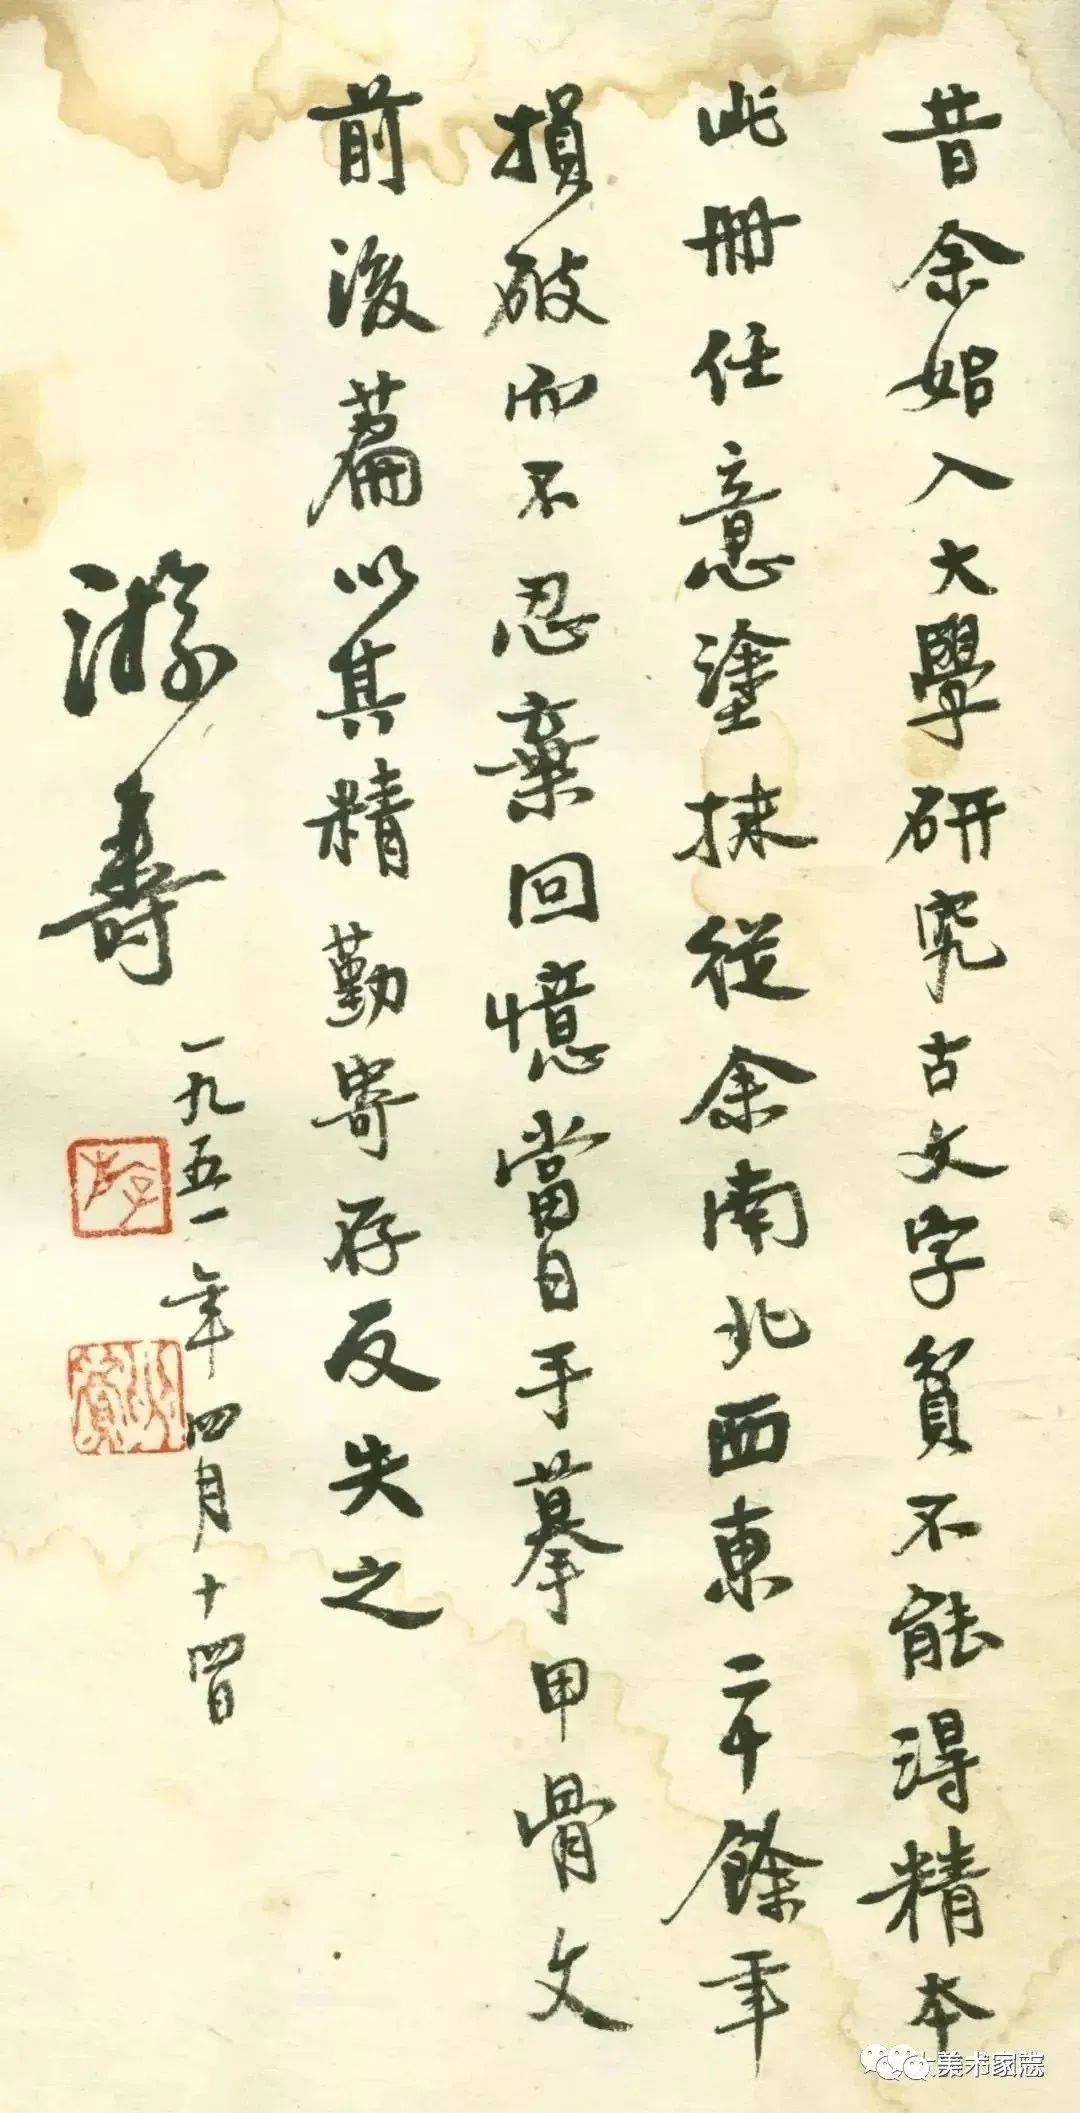 昔余始入大學研究古文字貧不能得精本
此冊任意塗抹從余南北西東二十餘年
損破而不忍棄回憶當日手摹甲骨文
前後篇以其精勤寄存反失之
游壽
一九五一年四月十四日
大美术家志